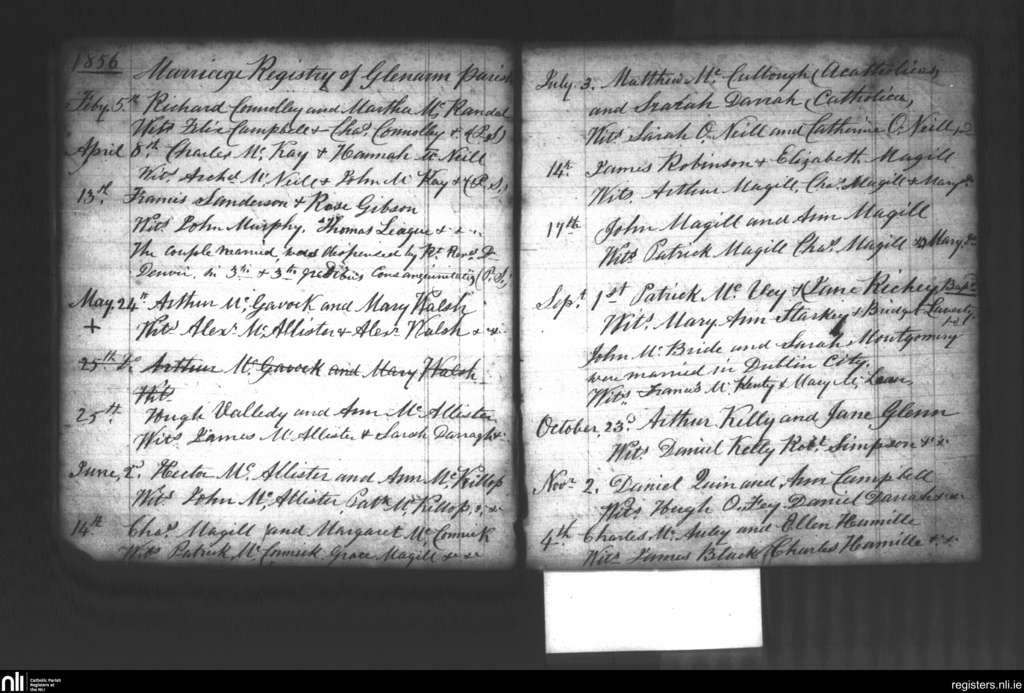 1856
Marriage Registry of Glenarm parish
Feby. 5th Richard Connolley and Martha Mc Randal
Wits Felix Campbell & Chas. Connolley & (P.s)
April 8th Charles Mc Kay & Hannah O Neill
Wits. Archd Mc Neill & John Mc Kay & (P. S,)
13th Francis Sanderson & Rose Gibson
Wits John Murphy, Thomas League & &
The couple married, was dispensed by Rt. Revd. Dr
Denvir, in 3tio & 3tio gredibus Consanguinitatis (P. S.)
May 24th Arthur Mc Gavock and Mary Walsh
+ Wits Alexr. Mc Allister & Alexr Walsh & &
25th Do Arthur Mc Gavock and Mary Walsh
Wit
25th. Hugh Valledy and Ann Mc Allister
Wits James Mc Allister & Sarah Darragh &
June, 2d Hector Mc Allister and Ann Mc Killop
Wits John Mc Allister, Patk Mc Killop, &, &
14th Chas. Magill and Margaret Mc Cormick
Wits Patrick Mc Cormick Grace Magill & &
July. 3. Matthew Mc Cullough (Acatholicus)
and Sarah Darrah, (Catholica,
Wits Sarah O, Neill and Catherine O, Neill
14th James Robinson & Elizabeth Magill
Wits. Arthur Magill, Chas. Magill & Mary
17th John Magill and Ann Magill
Wits Patrick Magill Chas. Magill & Mary
Sept. 1st Patrick Mc Vey & Jane Richey Bapd
Wits. Mary Ann Starkey & Bridget Laverty
John Mc Bride and Sarah Montgomery
were married in Dublin City.
Wits Francis Mc Henty & Mary Mc
October, 23d Arthur Kelly and Jane Glenn
Wits Daniel Kelly Robt. Simpson & &
Novr 2. Daniel Quin and Ann Campbell
Wits Hugh Daniel Darrah
4th Charles Mc Auley and Ellen Hamille
Wits James Black (Charles Hamille & &
nli
Catholic Parish
Registers at
the NLI
registers.nli.ie